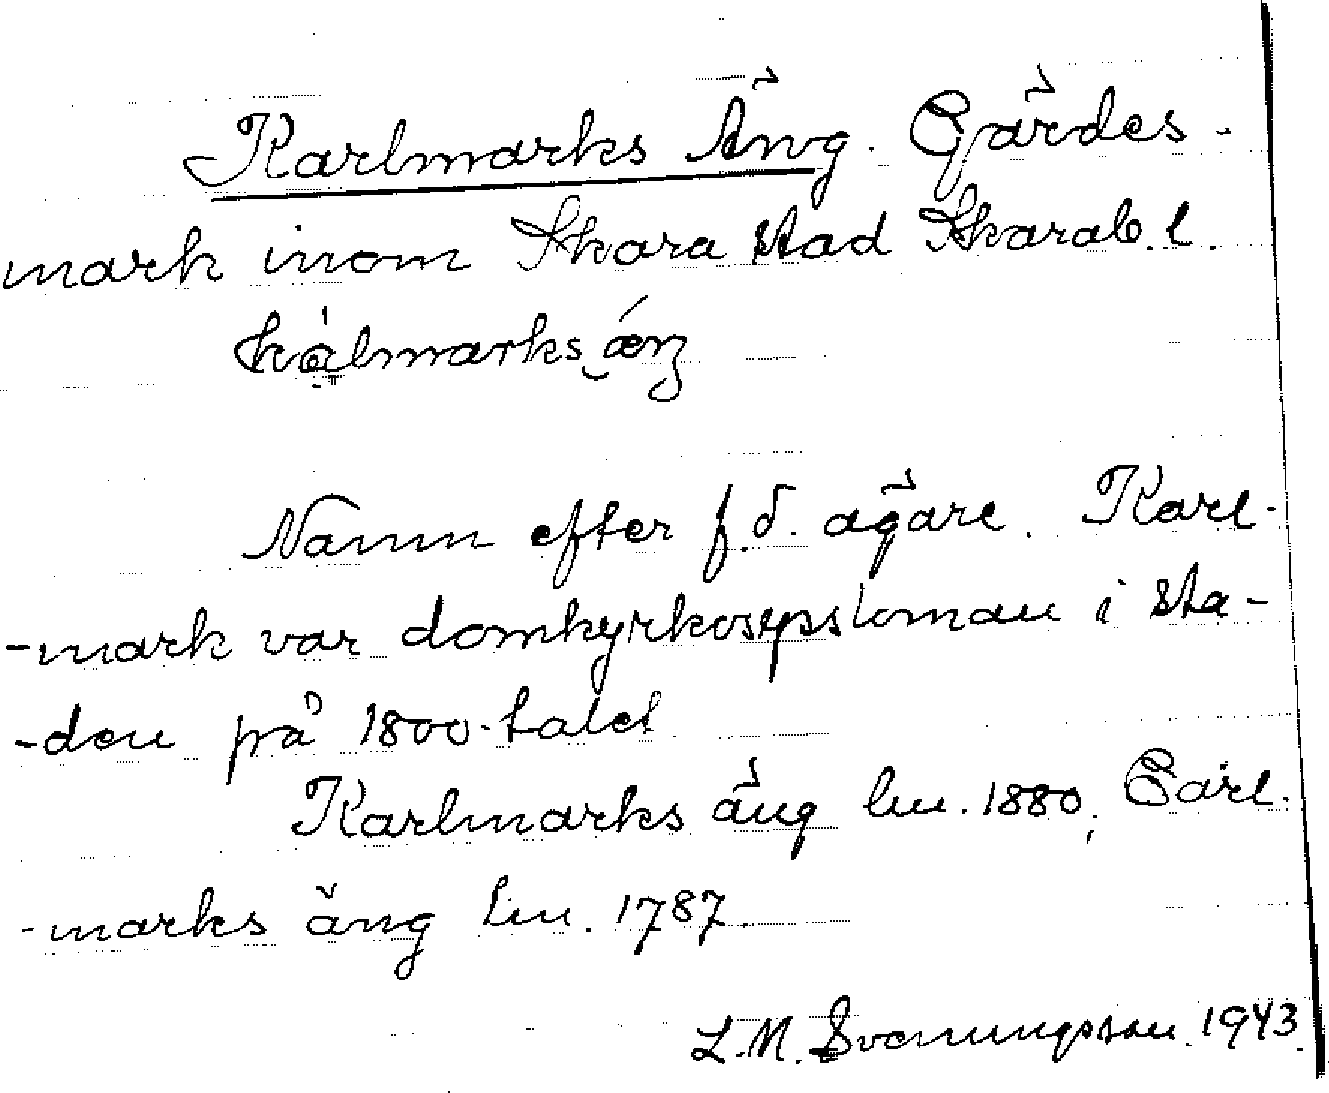 Karlmarks Äng. Gärdes-
mark inom Skara stad Skarab. l.
Namn efter f. d. ägare. Karl-
-mark var domkyrkosyssloman i sta-
-den på 1800-talet
Karlmarks äng lm. 1880; Carl-
-marks äng lm. 1787.
L. M. Svenungsson 1943